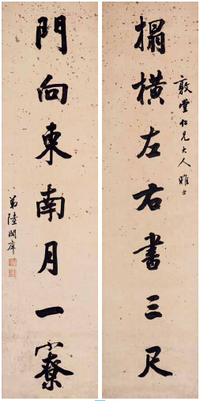 敦堂仁兄大人雅正
榻橫左右書三尺
門向東南月一寮
弟陸潤庠